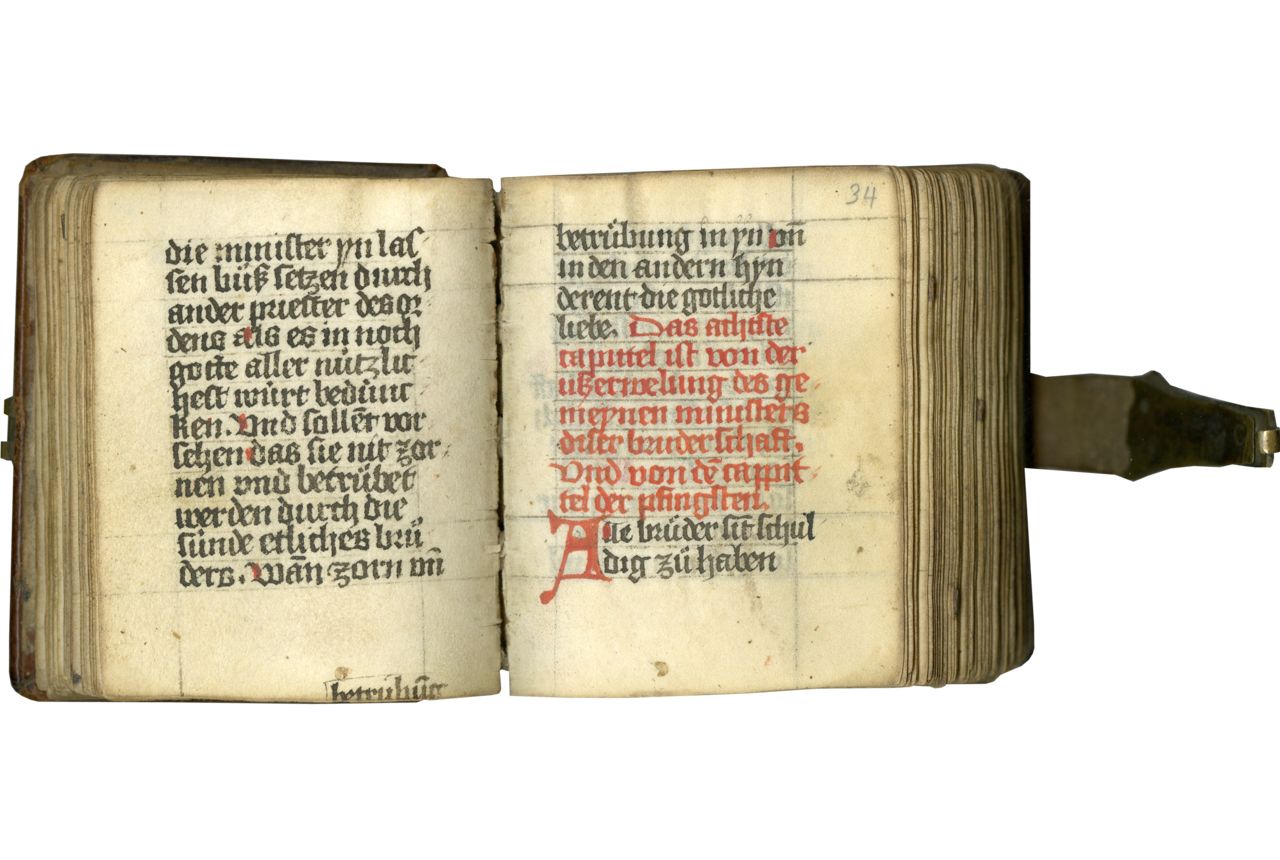 die minister yn las
sen büß setzen durch
ander priester des or
dens als es in noch
gotte aller nützlic
hest würt bedunc
ken. Vnd sollēt vor
sehen das sie nit zor
nen vnd betrübet
werden durch die
sünde etliches brü
ders. Wān zorn vn̄
betrübūg
34
betrübung in yn von̄
in den andern hyn
derent die gotliche
liebe. Das achtste
capittel ist von der
ußerwelung des ge
meynen ministers
diser bruderschaft.
Vnd von dē cappit
tel der pfingsten.
Alle brüder sīt schul
dig zü haben